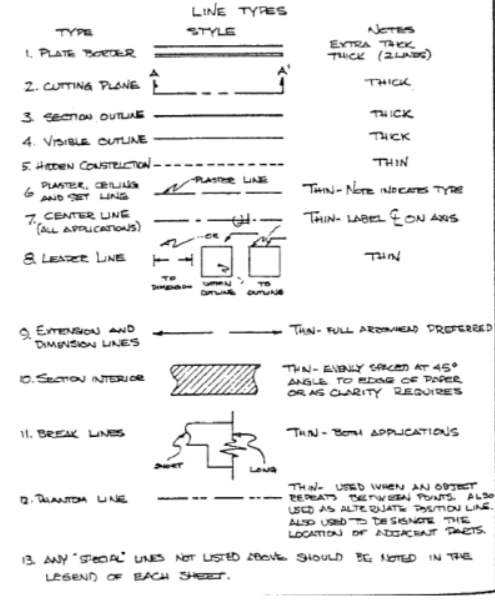 LINE TYPES
TYPE STYLE NOTES
1. PLATE BORDER EXTRA THICK
THICK (2 LINES)
2. CUTTING PLANE A A' THICK
3. SECTION OUTLINE THICK
4. VISIBLE OUTLINE THICK
5. HIDDEN CONSTRUCTION THIN
6. PLASTER, CEILING
AND SET LINE PLASTER LINE THIN-NOTE INDICATES TYPE
7. CENTER LINE
(ALL APPLICATIONS) THIN-LABEL ℄ ON AXIS
OR
8. LEADER LINE THIN
TO
DIMENSION
WITHIN
OUTLINE
TO
OUTLINE
9. EXTENSION AND
DIMENSION LINES THIN-FULL ARROWHEAD PREFERRED
10. SECTION INTERIOR THIN-EVENLY SPACED AT 45°
ANGLE TO EDGE OF PAPER
OR AS CLARITY REQUIRES
11. BREAK LINES THIN-BOTH APPLICATIONS
SHORT LONG
12. PHANTOM LINE THIN- USED WHEN AN OBJECT
REPEATS BETWEEN POINTS. ALSO
USED AS ALTERNATE POSITION LINE.
ALSO USED TO DESIGNATE THE
LOCATION OF ADJACENT PARTS.
13. ANY "SPECIAL" LINES NOT LISTED ABOVE SHOULD BE NOTED IN THE
LEGEND OF EACH SHEET.